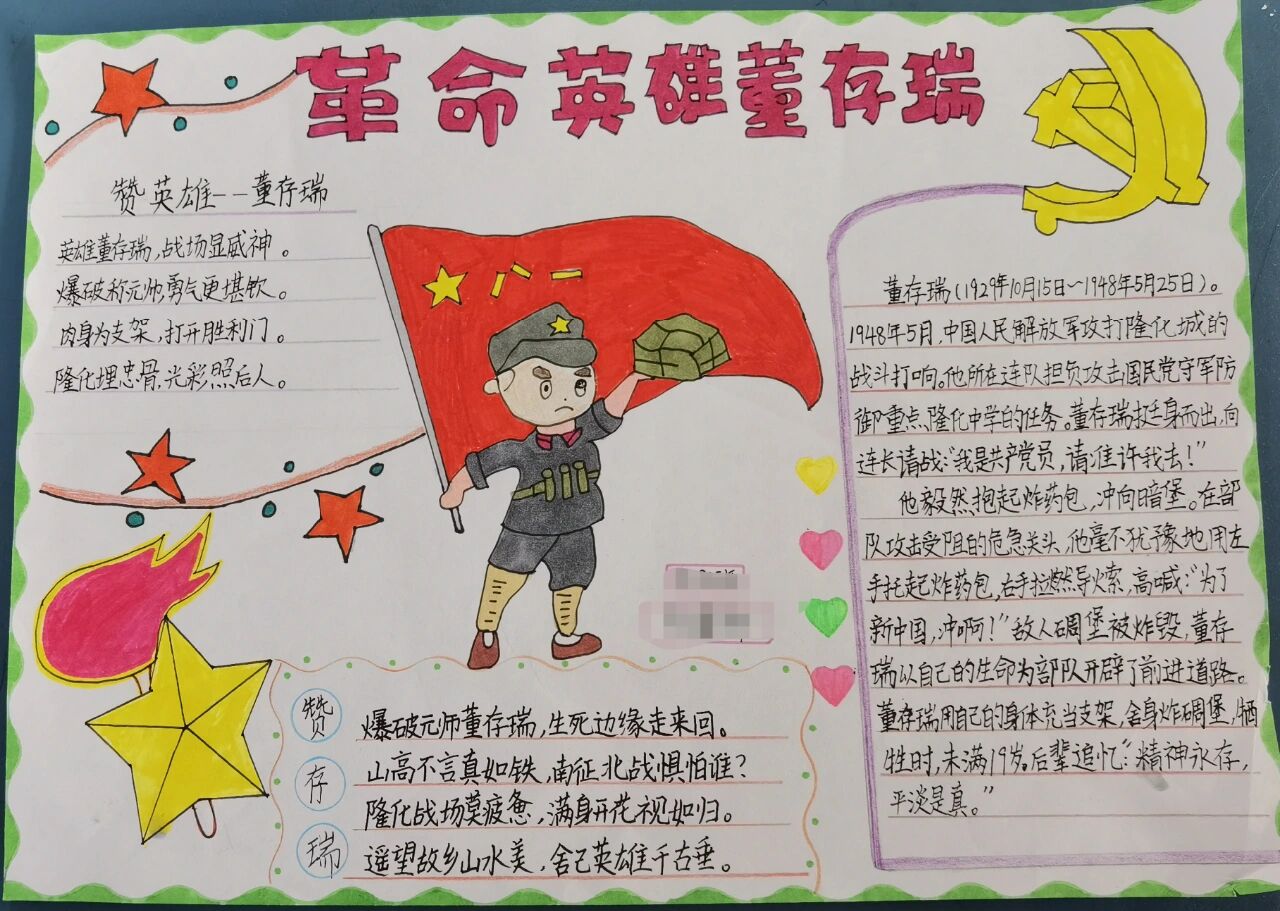 革命英雄董存瑞
赞英雄--董存瑞
英雄董存瑞,战场显威神。
爆破称元帅,勇气更堪钦。
肉身为支架,打开胜利门。
隆化埋忠骨,光彩照后人。
八一
董存瑞(1929年10月15日~1948年5月25日)。
1948年5月,中国人民解放军攻打隆化城的
战斗打响。他所在连队担负攻击国民党守军防
御重点隆化中学的任务。董存瑞挺身而出,向
连长请战:“我是共产党员,请准许我去!”
他毅然抱起炸药包,冲向暗堡。在部
队攻击受阻的危急关头,他毫不犹豫地用左
手托起炸药包,右手拉燃导火索,高喊:“为了
新中国,冲啊!”敌人碉堡被炸毁,董存
瑞以自己的生命为部队开辟了前进道路。
董存瑞用自己的身体充当支架,舍身炸碉堡,牺
牲时,未满19岁。后辈追忆:“精神永存,
平淡是真。”
赞存瑞
爆破元师董存瑞,生死边缘走来回。
山高不言真如铁,南征北战惧怕谁?
隆化战场莫疲惫,满身开花视如归。
遥望故乡山水美,舍己英雄千古垂。